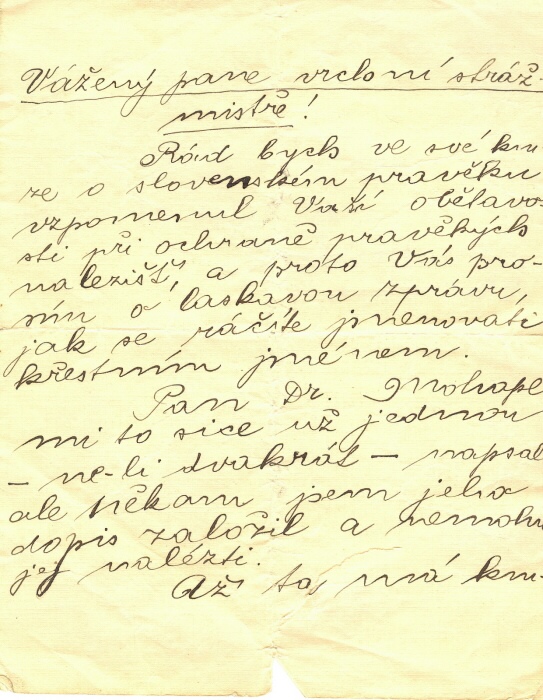 Vážený pane vrchní stráž-
mistře!
Rád bych ve své kni
ze o slovenském pravěku
vzpomenul Vaší obětavo-
sti při ochraně pravěkých
nalezišť, a proto Vás pro-
sím o laskavou zprávu,
jak se ráčíte jmenovati
křestním jménem.
Pan Dr. Mohape
mi to sice už jednou
– ne-li dvakrát – napsal
ale někam jsem jeho
dopis založil a nemohu
jej nalézti.
Až tas má kni-